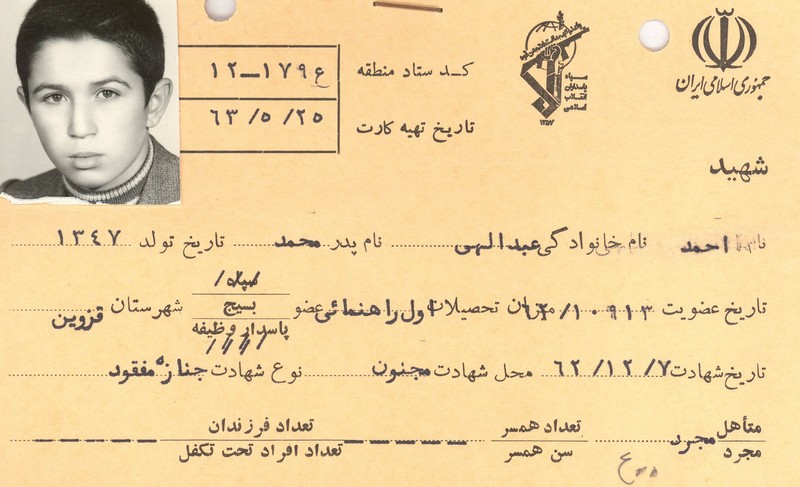 جمهوری اسلامی ایران
سپاه پاسداران انقلاب اسلامی
۱۳۵۷
کد ستاد منطقه ۱۷۹۴-۱۲
تاریخ تهیه کارت ۶۳/۵/۲۵
شهید
نام احمد نام خانوادگی عبدالهی نام پدر محمد تاریخ تولد ۱۳۴۷
تاریخ عضویت میزان تحصیلات اول راهنمائی عضو سپاه بسیج پاسدار وظیفه شهرستان قزوین
تاریخ شهادت ۶۲/۱۲/۷ محل شهادت مجنون نوع شهادت جنازه مفقود
متأهل مجرد مجرد تعداد همسر سن همسر تعداد فرزندان تعداد افراد تحت تکفل